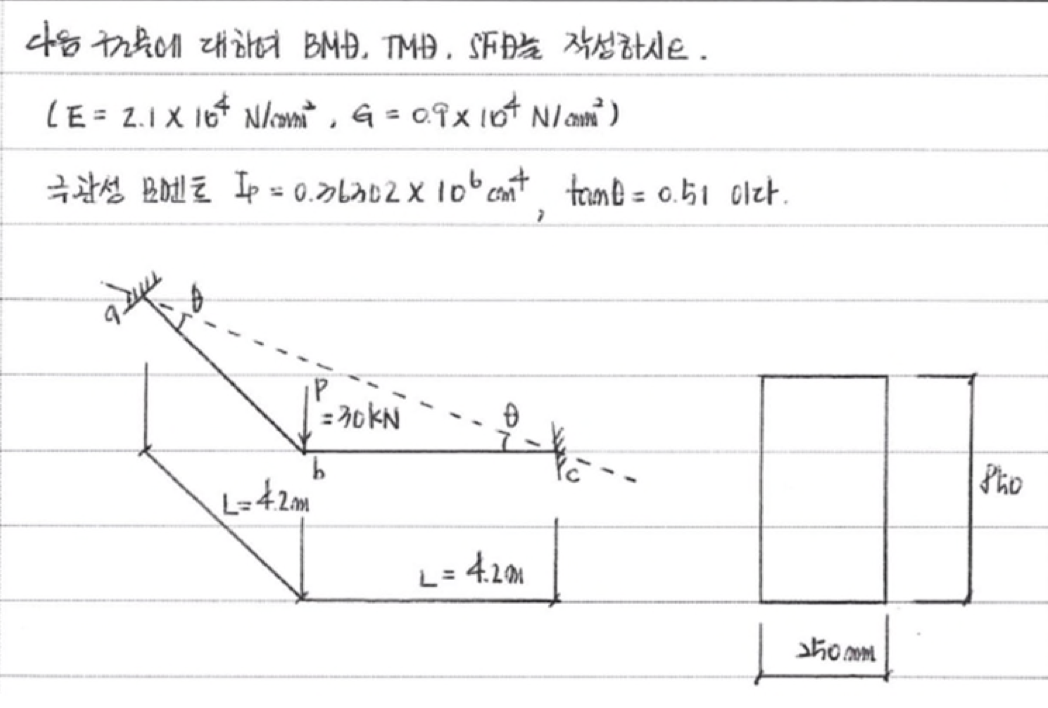 다음 구조물에 대하여 BMD, TMD, SFD를 작성하시오.
(E = 2.1 × 10⁴ N/mm², G = 0.9 × 10⁴ N/mm²)
극관성 모멘트 Ip = 0.36302 × 10⁶ cm⁴, tanθ = 0.51 이다.
a
θ
P
= 30kN
θ
b
c
L = 4.2m
L = 4.2m
850
250mm